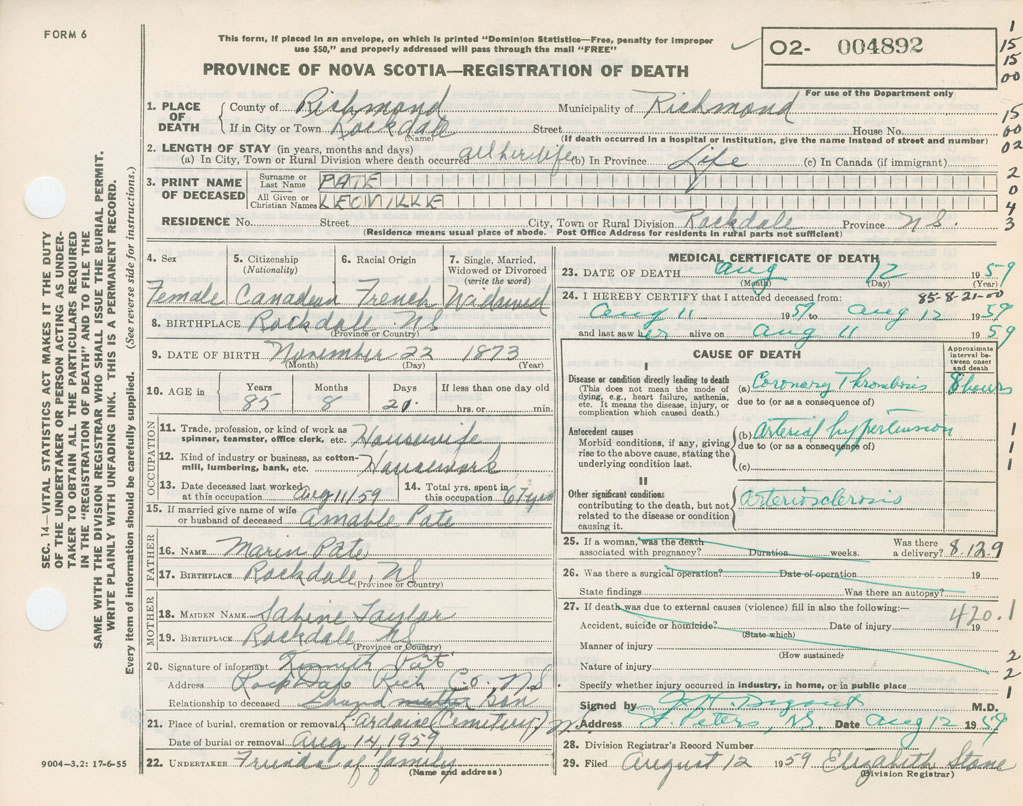 FORM 6
This form, if placed in an envelope, on which is printed "Dominion Statistics—Free, penalty for improper
use $50," and properly addressed will pass through the mail "FREE"
PROVINCE OF NOVA SCOTIA—REGISTRATION OF DEATH
O2- 004892
For use of the Department only
1
15
15
00
15
00
02
2
0
4
3
SEC. 14—VITAL STATISTICS ACT MAKES IT THE DUTY
OF THE UNDERTAKER OR PERSON ACTING AS UNDER-
TAKER TO OBTAIN ALL THE PARTICULARS REQUIRED
IN THE "REGISTRATION OF DEATH" AND TO FILE THE
SAME WITH THE DIVISION REGISTRAR WHO SHALL ISSUE THE BURIAL PERMIT.
WRITE PLAINLY WITH UNFADING INK. THIS IS A PERMANENT RECORD.
Every item of information should be carefully supplied. (See reverse side for instructions.)
1. PLACE OF DEATH County of Richmond Municipality of Richmond
If in City or Town Rockdale Street House No.
(Name) (If death occurred in a hospital or institution, give the name instead of street and number)
2. LENGTH OF STAY (in years, months and days)
(a) In City, Town or Rural Division where death occurred all her life (b) In Province Life (c) In Canada (if immigrant)
3. PRINT NAME OF DECEASED Surname or Last Name PATE
All Given or Christian Names
RESIDENCE No. Street City, Town or Rural Division Rockdale Province N S.
(Residence means usual place of abode. Post Office Address for residents in rural parts not sufficient)
4. Sex 5. Citizenship (Nationality) 6. Racial Origin 7. Single, Married, Widowed or Divorced (write the word)
Female Canadian French Widowed
8. BIRTHPLACE Rockdale NS
(Province or Country)
9. DATE OF BIRTH November 22 1873
(Month) (Day) (Year)
10. AGE in Years Months Days If less than one day old
85 8 21 hrs. or min.
OCCUPATION
11. Trade, profession, or kind of work as
spinner, teamster, office clerk, etc. Housewife
12. Kind of industry or business, as cotton-
mill, lumbering, bank, etc. Housework
13. Date deceased last worked at this occupation Aug 11/59 14. Total yrs. spent in this occupation 67 yrs
15. If married give name of wife
or husband of deceased Amable Pate
FATHER
16. NAME Marin Pate
17. BIRTHPLACE Rockdale, NS
(Province or Country)
MOTHER
18. MAIDEN NAME Sabine Taylor
19. BIRTHPLACE Rockdale NS
(Province or Country)
20. Signature of informant Pate
Address Rockdale Rich Co. NS
Relationship to deceased son
21. Place of burial, cremation or removal Lardoise (Cemetery)
Date of burial or removal Aug 14, 1959
22. UNDERTAKER Friends of family
(Name and address)
9004-3.2: 17-6-55
MEDICAL CERTIFICATE OF DEATH
23. DATE OF DEATH Aug 12 1959
(Month) (Day) (Year)
24. I HEREBY CERTIFY that I attended deceased from: 85-8-21-00
Aug 11 1959 to Aug 12 1959
and last saw her alive on Aug 11 1959
CAUSE OF DEATH
Approximate interval between onset and death
I
Disease or condition directly leading to death
(This does not mean the mode of
dying, e.g., heart failure, asthenia,
etc. It means the disease, injury, or
complication which caused death.)
(a) Coronary Thrombosis 8 hours
due to (or as a consequence of)
Antecedent causes
Morbid conditions, if any, giving
rise to the above cause, stating the
underlying condition last.
(b) Arterial hypertension
due to (or as a consequence of)
(c)
1
1
1
II
Other significant conditions
contributing to the death, but not
related to the disease or condition
causing it.
Arteriosclerosis
25. If a woman, was the death Was there
associated with pregnancy? Duration weeks. a delivery? 8.129
26. Was there a surgical operation? Date of operation 19
State findings Was there an autopsy?
27. If death was due to external causes (violence) fill in also the following:— 420.1
Accident, suicide or homicide? Date of injury 19
(State which)
Manner of injury
(How sustained)
Nature of injury
2
2
1
Specify whether injury occurred in industry, in home, or in public place
Signed by M.D.
Address St Peters, NS. Date Aug 12 1959
28. Division Registrar's Record Number
29. Filed August 12 1959 Elizabeth Stone
(Division Registrar)